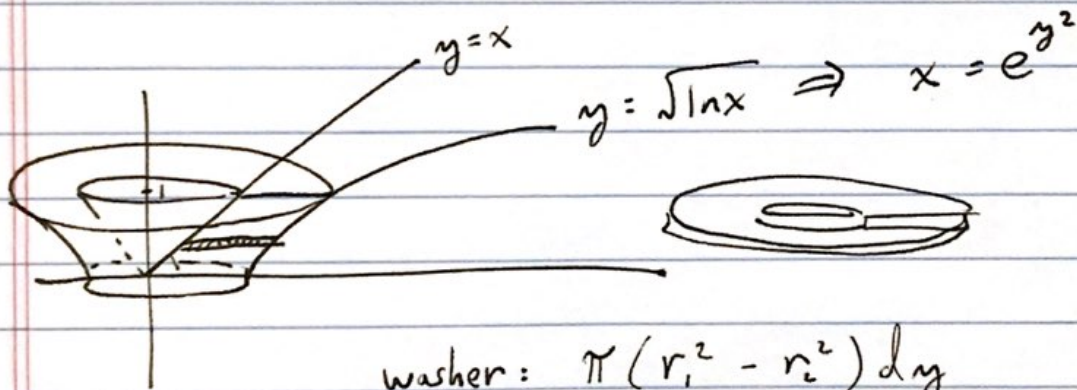 y=x
y = √lnx ⇒ x = e^{y^2}
1
washer: π(r₁² - r₂²) dy